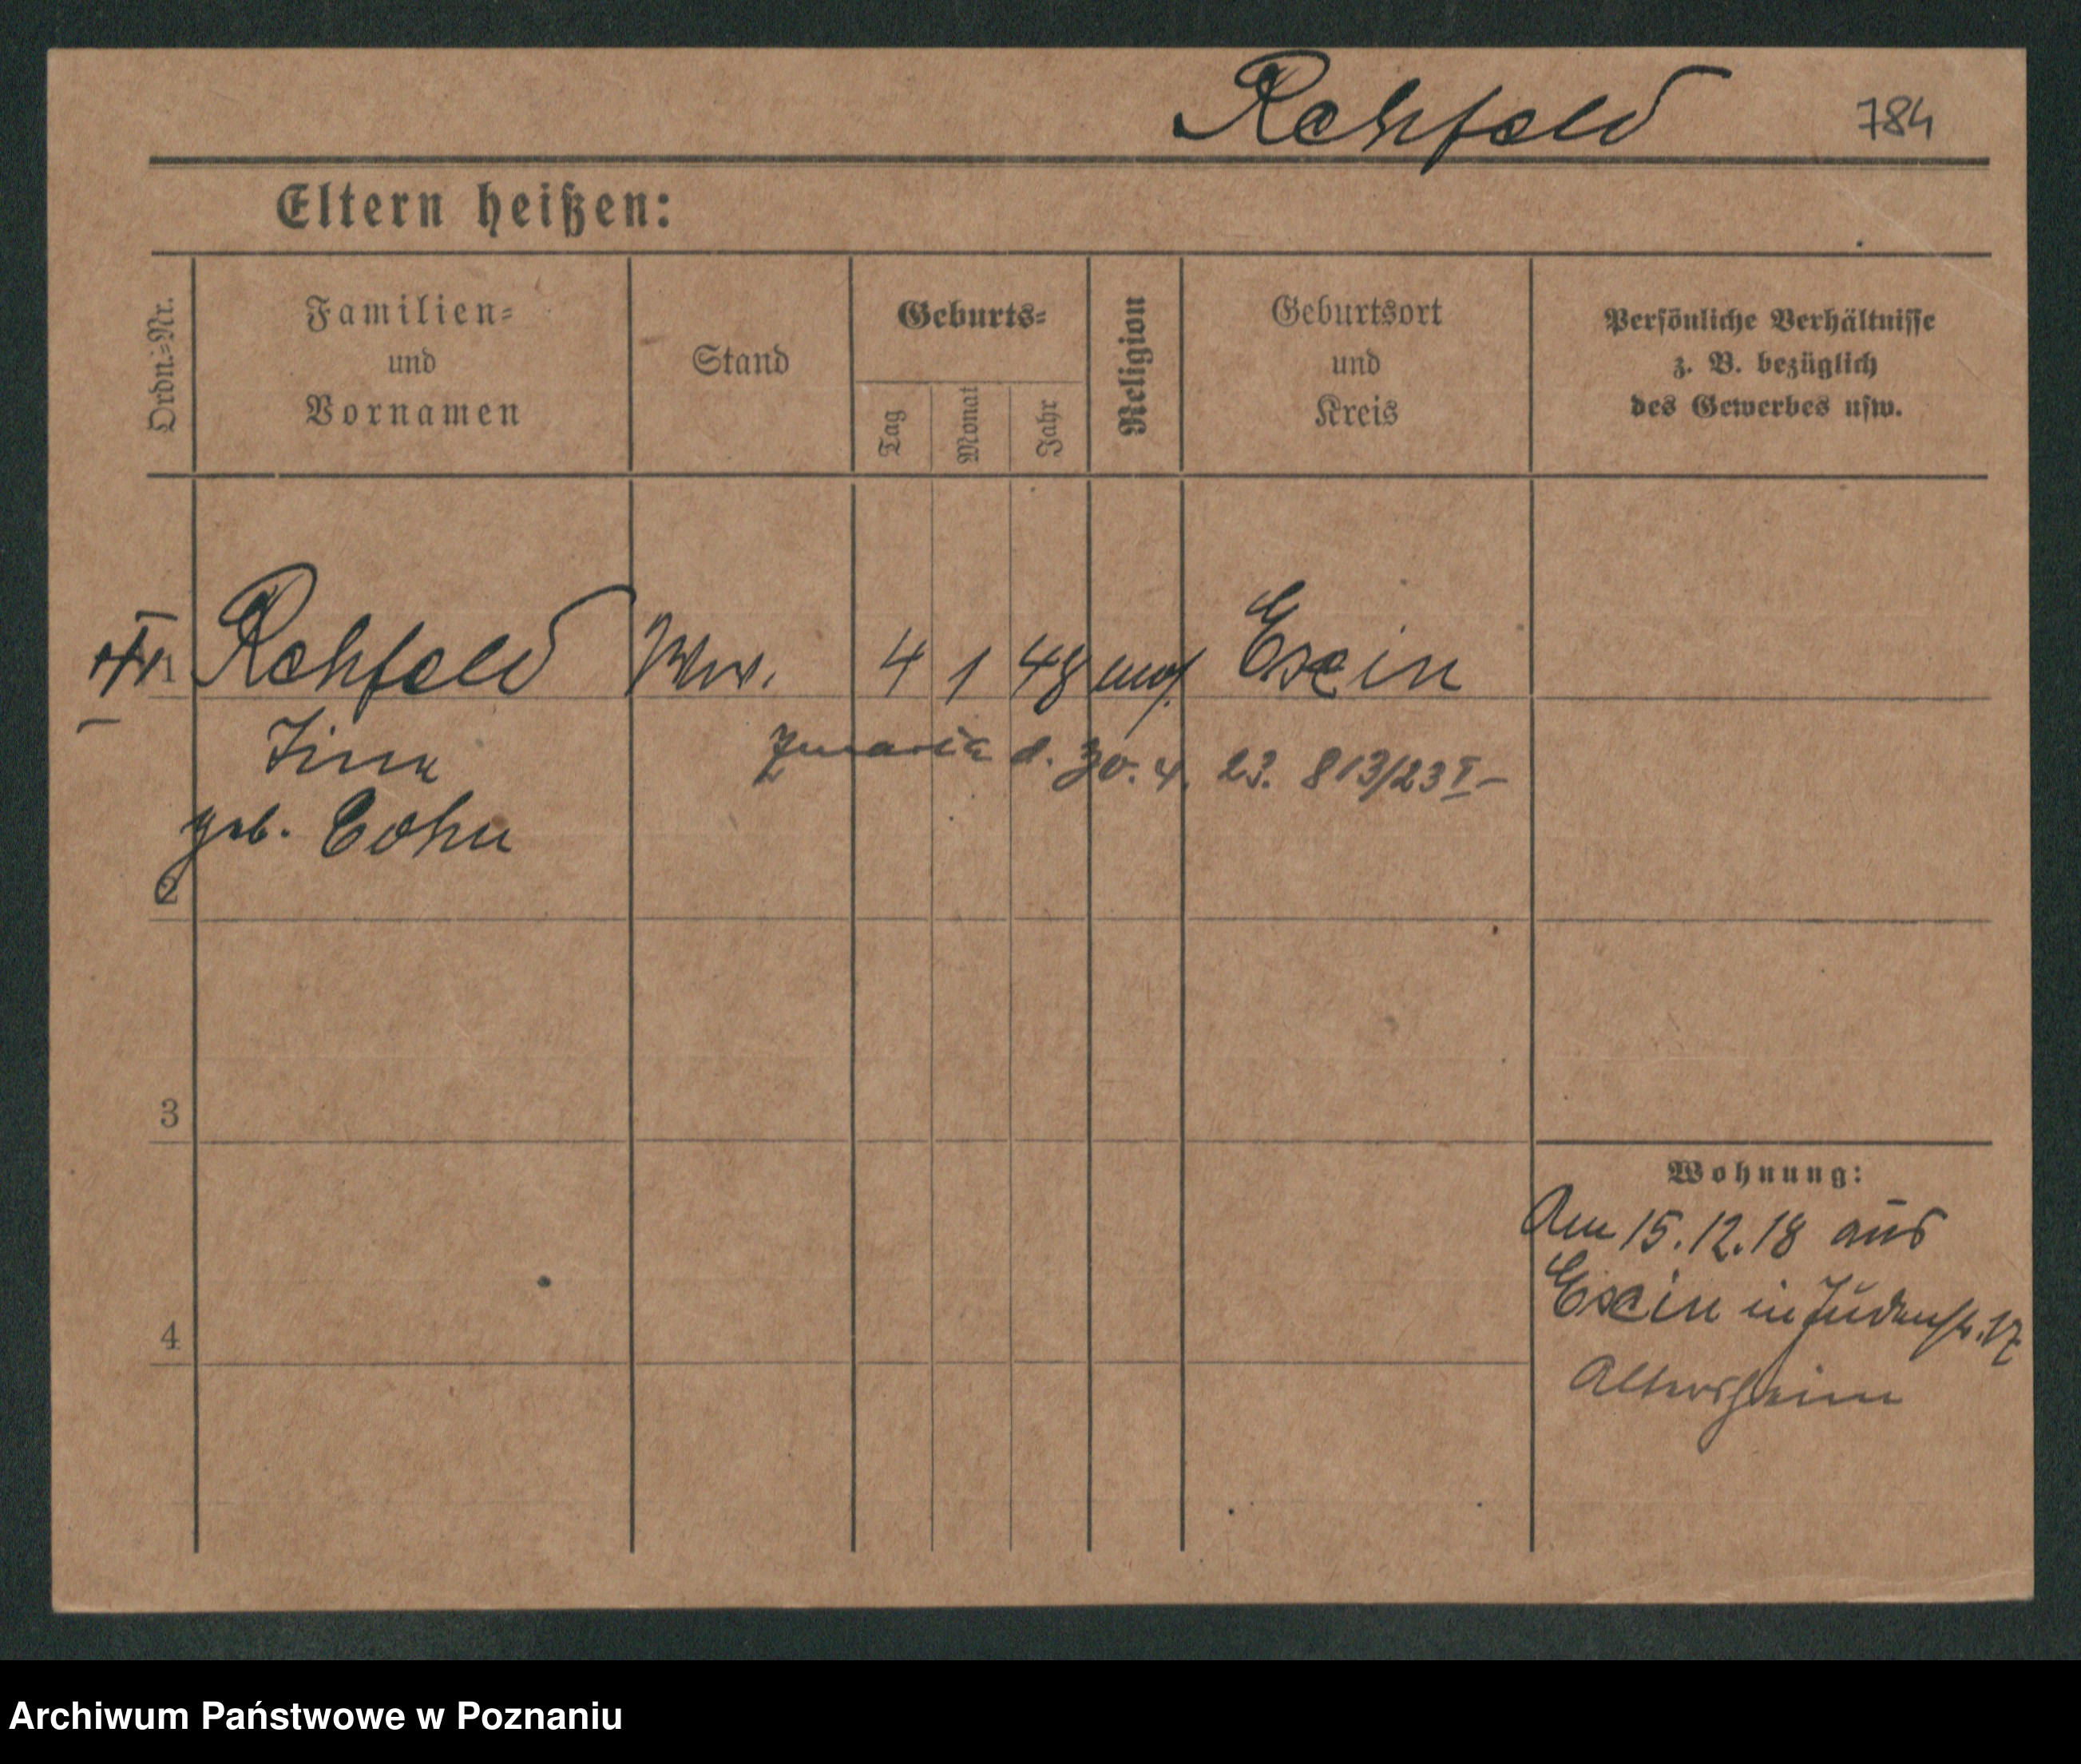 Rehfeld 784
Eltern heißen:
Ordn.-Nr.
Familien-
und
Vornamen
Stand
Geburts-
Tag
Monat
Jahr
Religion
Geburtsort
und
Kreis
Persönliche Verhältnisse
z. B. bezüglich
des Gewerbes usw.
1 Rehfeld Ww. 4 1 48 mos. Exin
zmarła d. 30. 4. 23. 813/23 I
geb. Cohn
2
3
4
Wohnung:
Am 15.12.18 aus
Exin in Judenstr. 17
Altersheim
Archiwum Państwowe w Poznaniu